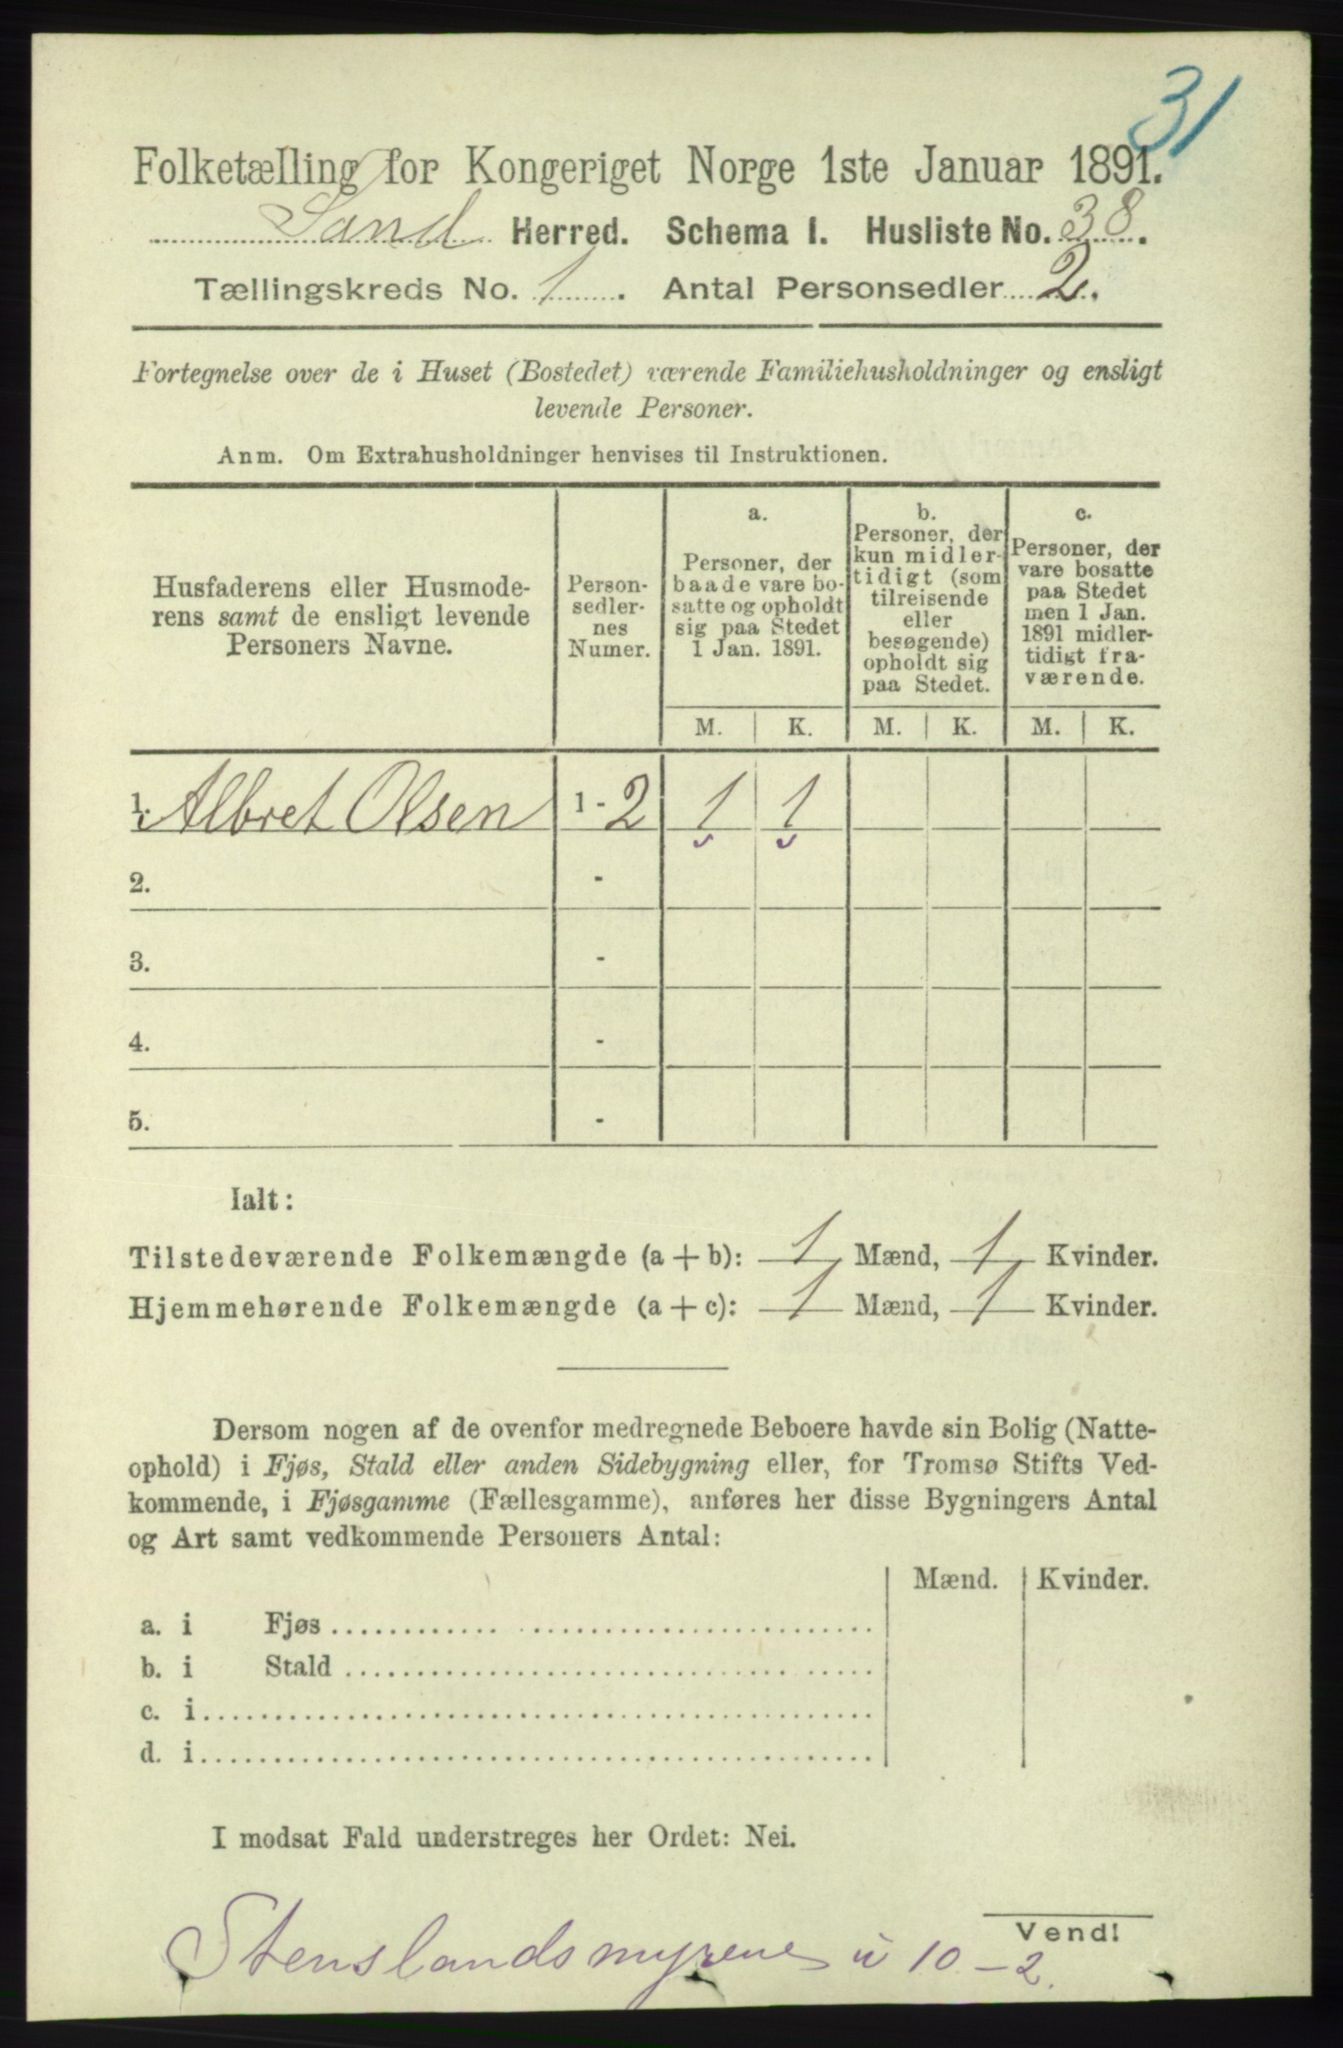 31
Folketælling for Kongeriget Norge 1ste Januar 1891.
Sand Herred. Schema I. Husliste No. 38.
Tællingskreds No. 1. Antal Personsedler 2.
Fortegnelse over de i Huset (Bostedet) værende Familiehusholdninger og ensligt
levende Personer.
Anm. Om Extrahusholdninger henvises til Instruktionen.
Husfaderens eller Husmode-
rens samt de ensligt levende
Personers Navne.
Person-
sedler-
nes
Numer.
a.
Personer, der
baade vare bo-
satte og opholdt
sig paa Stedet
1 Jan. 1891.
b.
Personer, der
kun midler-
tidigt (som
tilreisende
eller
besøgende)
opholdt sig
paa Stedet.
c.
Personer, der
vare bosatte
paa Stedet
men 1 Jan.
1891 midler-
tidigt fra-
værende.
M. K. M. K. M. K.
1. Albret Olsen 1 - 2 1 1
2. -
3. -
4. -
5. -
Ialt:
Tilstedeværende Folkemængde (a + b): 1 Mænd, 1 Kvinder.
Hjemmehørende Folkemængde (a + c): 1 Mænd, 1 Kvinder.
Dersom nogen af de ovenfor medregnede Beboere havde sin Bolig (Natte-
ophold) i Fjøs, Stald eller anden Sidebygning eller, for Tromsø Stifts Ved-
kommende, i Fjøsgamme (Fællesgamme), anføres her disse Bygningers Antal
og Art samt vedkommende Personers Antal:
Mænd. Kvinder.
a. i Fjøs
b. i Stald
c. i
d. i
I modsat Fald understreges her Ordet: Nei.
Vend!
Stenslandsmyrene u 10 - 2.